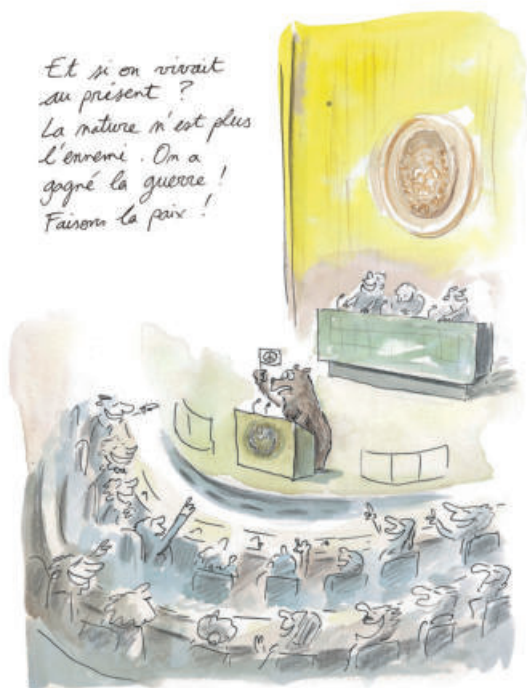 Et si on vivait
au présent ?
La nature n'est plus
l'ennemi. On a
gagné la guerre !
Faisons la paix !